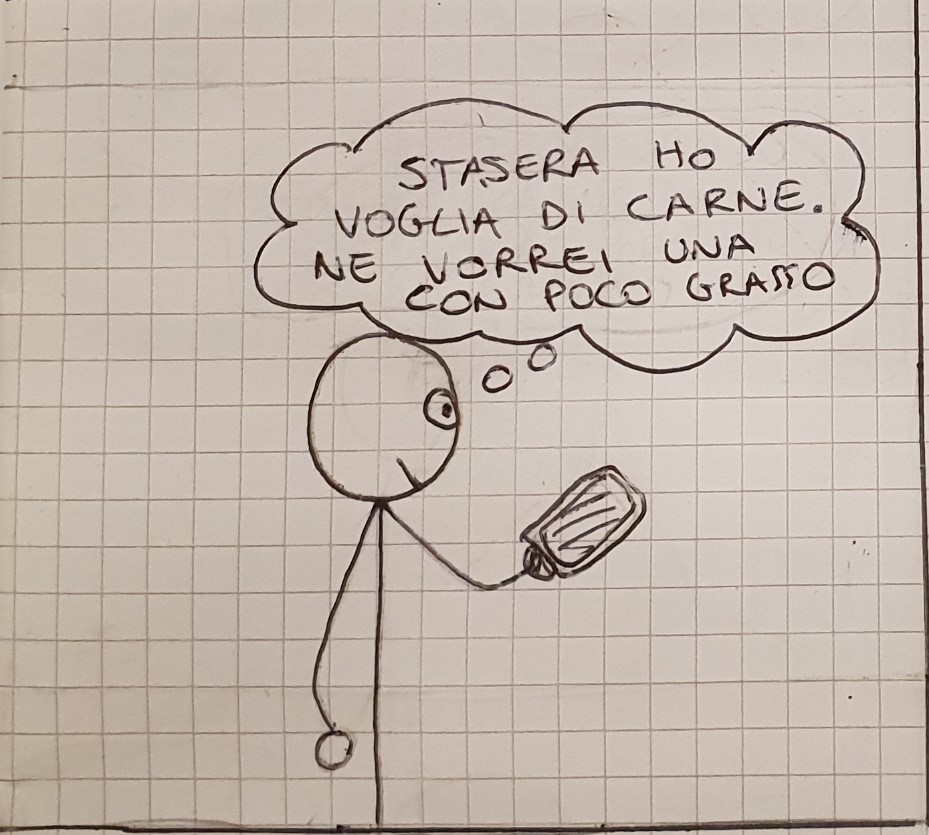 STASERA HO
VOGLIA DI CARNE.
NE VORREI UNA
CON POCO GRASSO